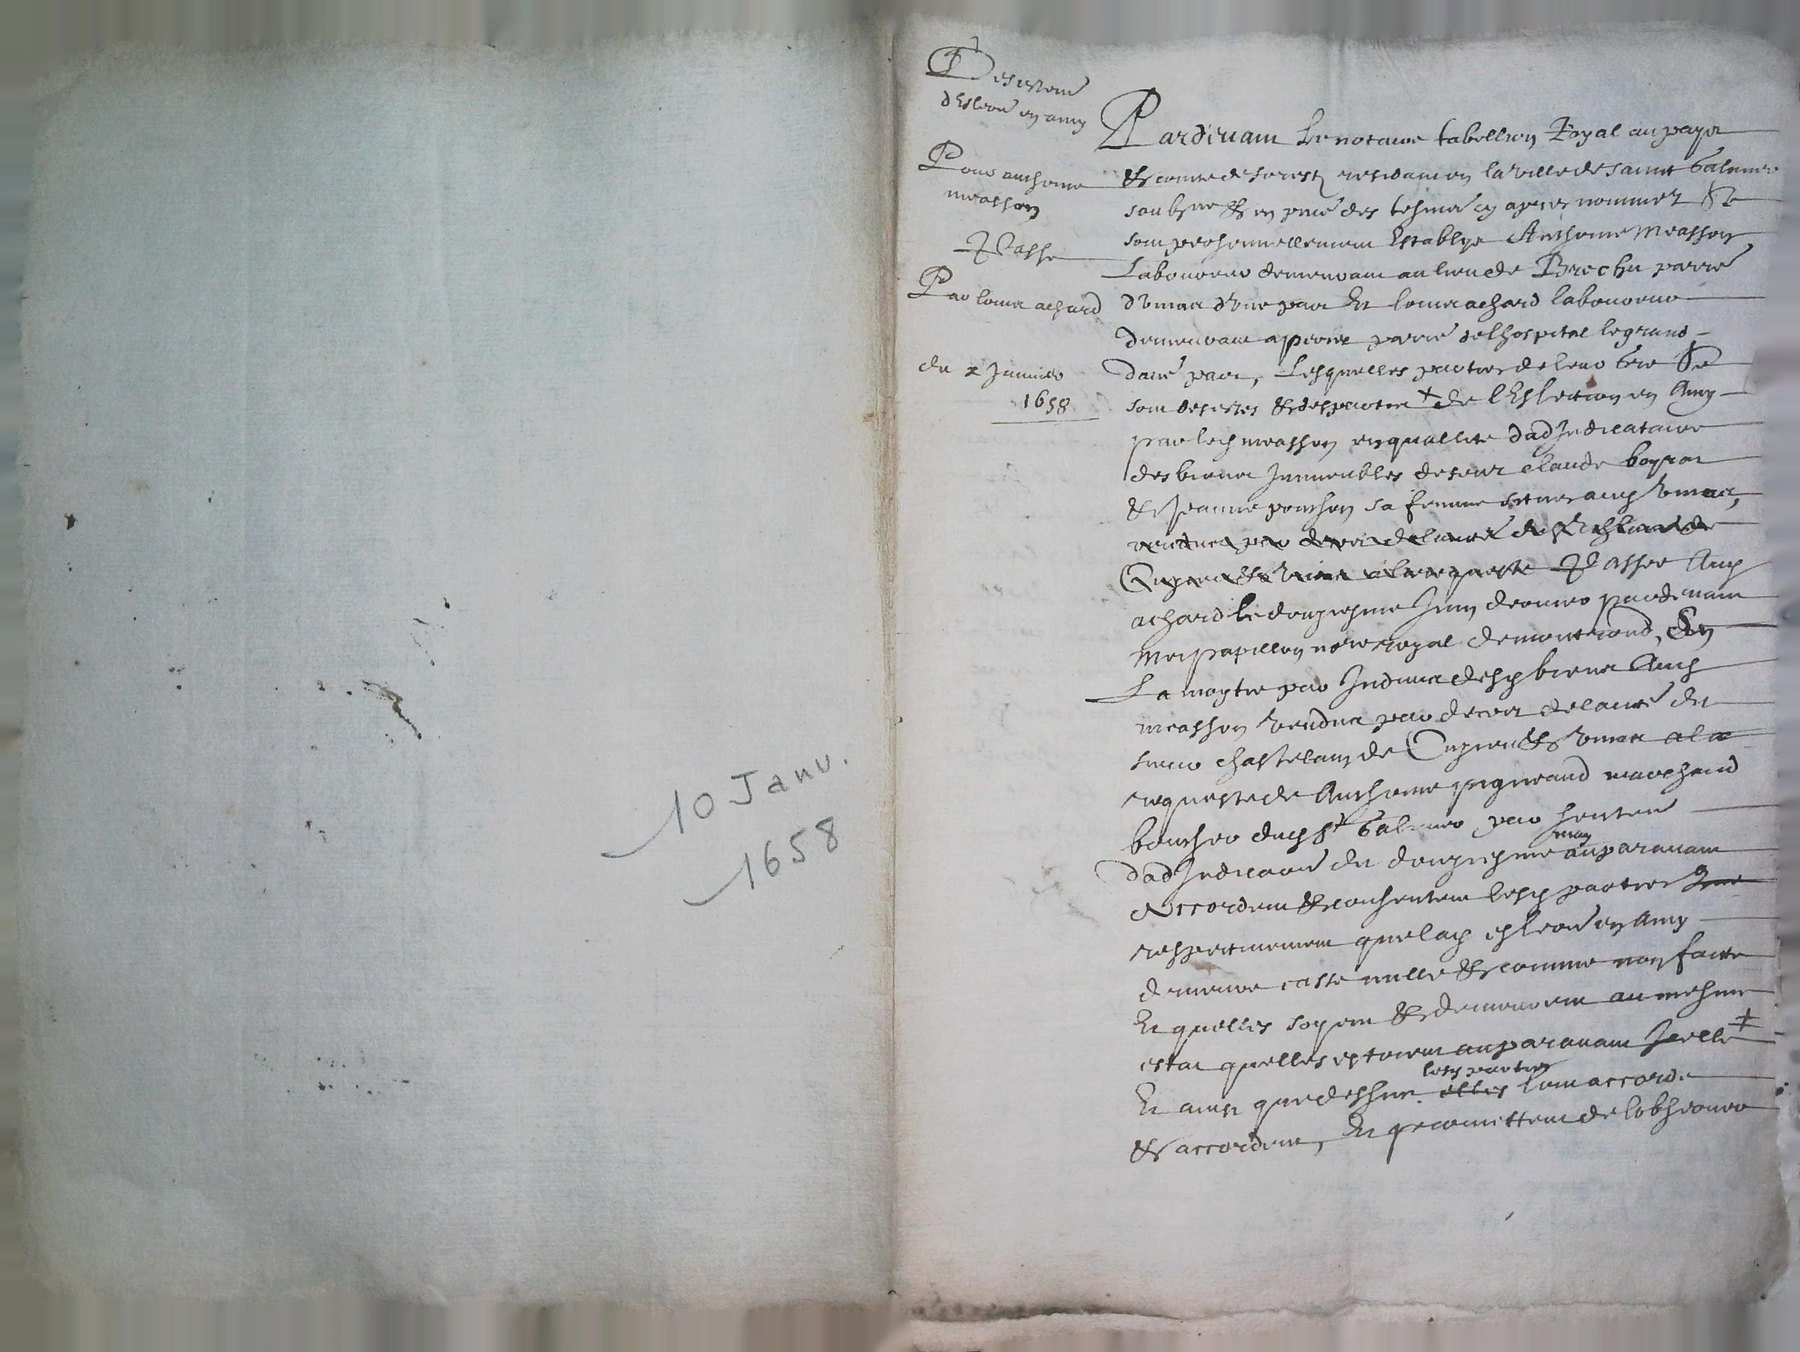 10 Janv.
1658
Desistem
d'Eslection en amy
Pour anthoine
measson
Passe
Par louis achard
du x Janvier
1658
Pardevant le notaire tabellion Royal au pays
& comte de forestz residant en la ville de saint Galmier
soubzne & en pnce des tesmoings cy apres nommez Se
sont personnellement Establys Anthoine Measson
Laboureur demeurant au lieu de Brochu parre
d'une part Et louis achard laboureur
demeurant a parre de lhospital le grand
part, Lesquelles parties de leur gre Se
sont desistes & despartis + de l'Eslection en Amy
par led measson en quallite dadjudicataire
des biens Immeubles de claude boyron
& Jeanne ponchon sa femme
Passee Aud
achard le douziesme Juin dernier pardevant
Me papillon nore royal de montrond, En
La moytie par Indivis desd biens Aud
measson vendus par decret de lauct du
sieur chastelain de Cuzieu & a la
requeste de Anthoine pigneaud marchand
boucher dud St Galmier par sentence
dadjudication du douziesme may auparavant
Accordent & consentent lesd parties
respectivement que lad eslection en Amy
demeure casse nulle & comme non faite
Et quelles soyent & demeurent au mesme
estat quelles estoient auparavant Icelle ‡
Et ainsi que dessus elles lesd parties lont accorde
& accordent, Et promettent de lobserver